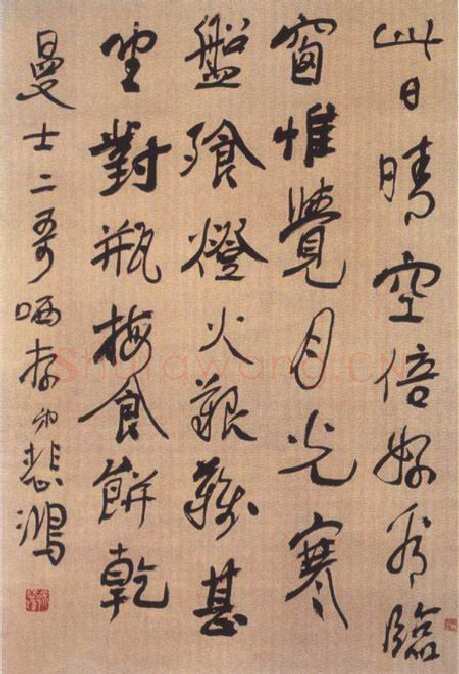 此日晴空倍好看臨
窗惟覺月光寒
盤飱燈火艱難甚
坐對瓶梅食餅乾
曼士二哥哂存弟悲鴻